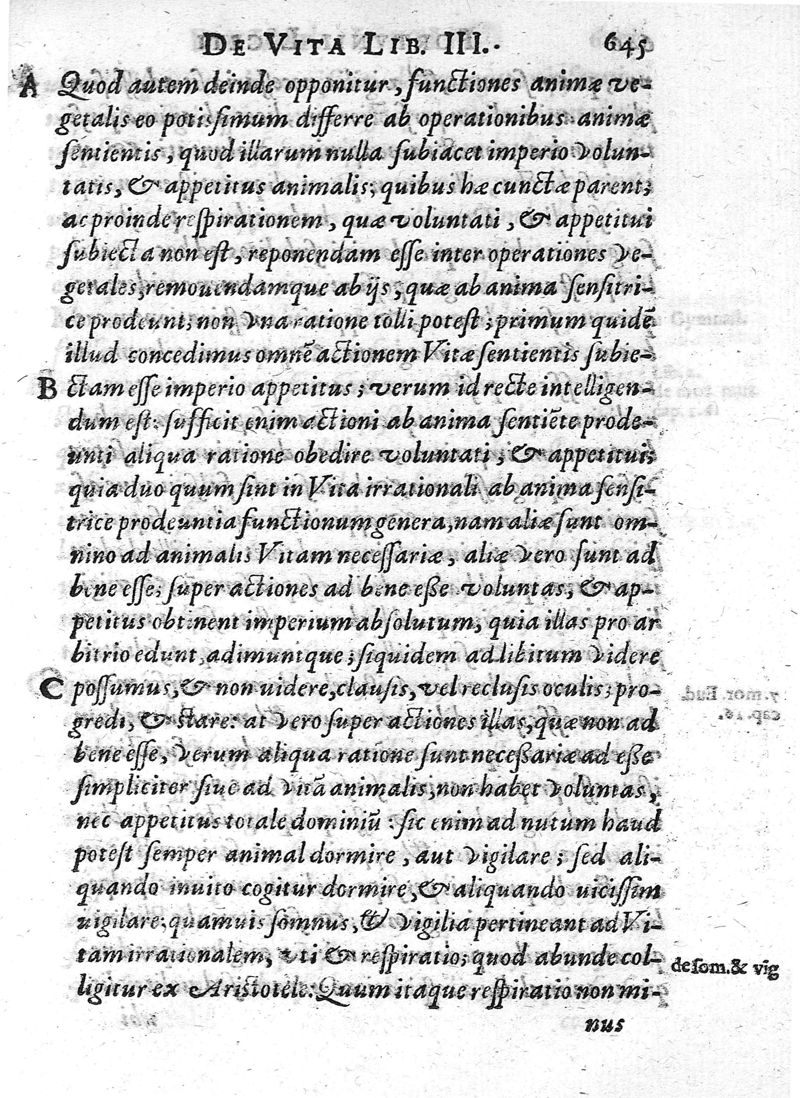 DE VITA LIB. III. 645
A Quod autem deinde opponitur, functiones animæ ve-
getalis eo potissimum differre ab operationibus animæ
sentientis, quod illarum nulla subiacet imperio volun-
tatis, & appetitus animalis; quibus hæ cunctæ parent;
ac proinde respirationem, quæ voluntati, & appetitui
subiecta non est, reponendam esse inter operationes ve-
getales, remouendamque ab ijs, quæ ab anima sensitri-
ce prodeunt; non vna ratione tolli potest; primum quidẽ
illud concedimus omnẽ actionem Vitæ sentientis subie-
B ctam esse imperio appetitus; verum id recte intelligen-
dum est: sufficit enim actioni ab anima sentiẽte prode-
unti aliqua ratione obedire voluntati, & appetitui;
quia duo quum sint in Vita irrationali ab anima sensi-
trice prodeuntia functionum genera, nam aliæ sunt om-
nino ad animalis Vitam necessariæ, aliæ vero sunt ad
bene esse; super actiones ad bene esse voluntas, & ap-
petitus obtinent imperium absolutum, quia illas pro ar
bitrio edunt, adimuntque; siquidem ad libitum videre
C possumus, & non uidere, clausis, vel reclusis oculis; pro-
gredi, & stare: at vero super actiones illas, quæ non ad
bene esse, verum aliqua ratione sunt necessariæ ad esse
simpliciter siue ad vitã animalis, non habet voluntas,
nec appetitus totale dominiũ: sic enim ad nutum haud
potest semper animal dormire, aut vigilare; sed ali-
quando inuito cogitur dormire, & aliquando uicissim
uigilare; quamuis somnus, & vigilia pertineant ad Vi-
tam irrationalem, vti & respiratio; quod abunde col-
ligitur ex Aristotele: Quum itaque respiratio non mi-
de som. & vig
nus